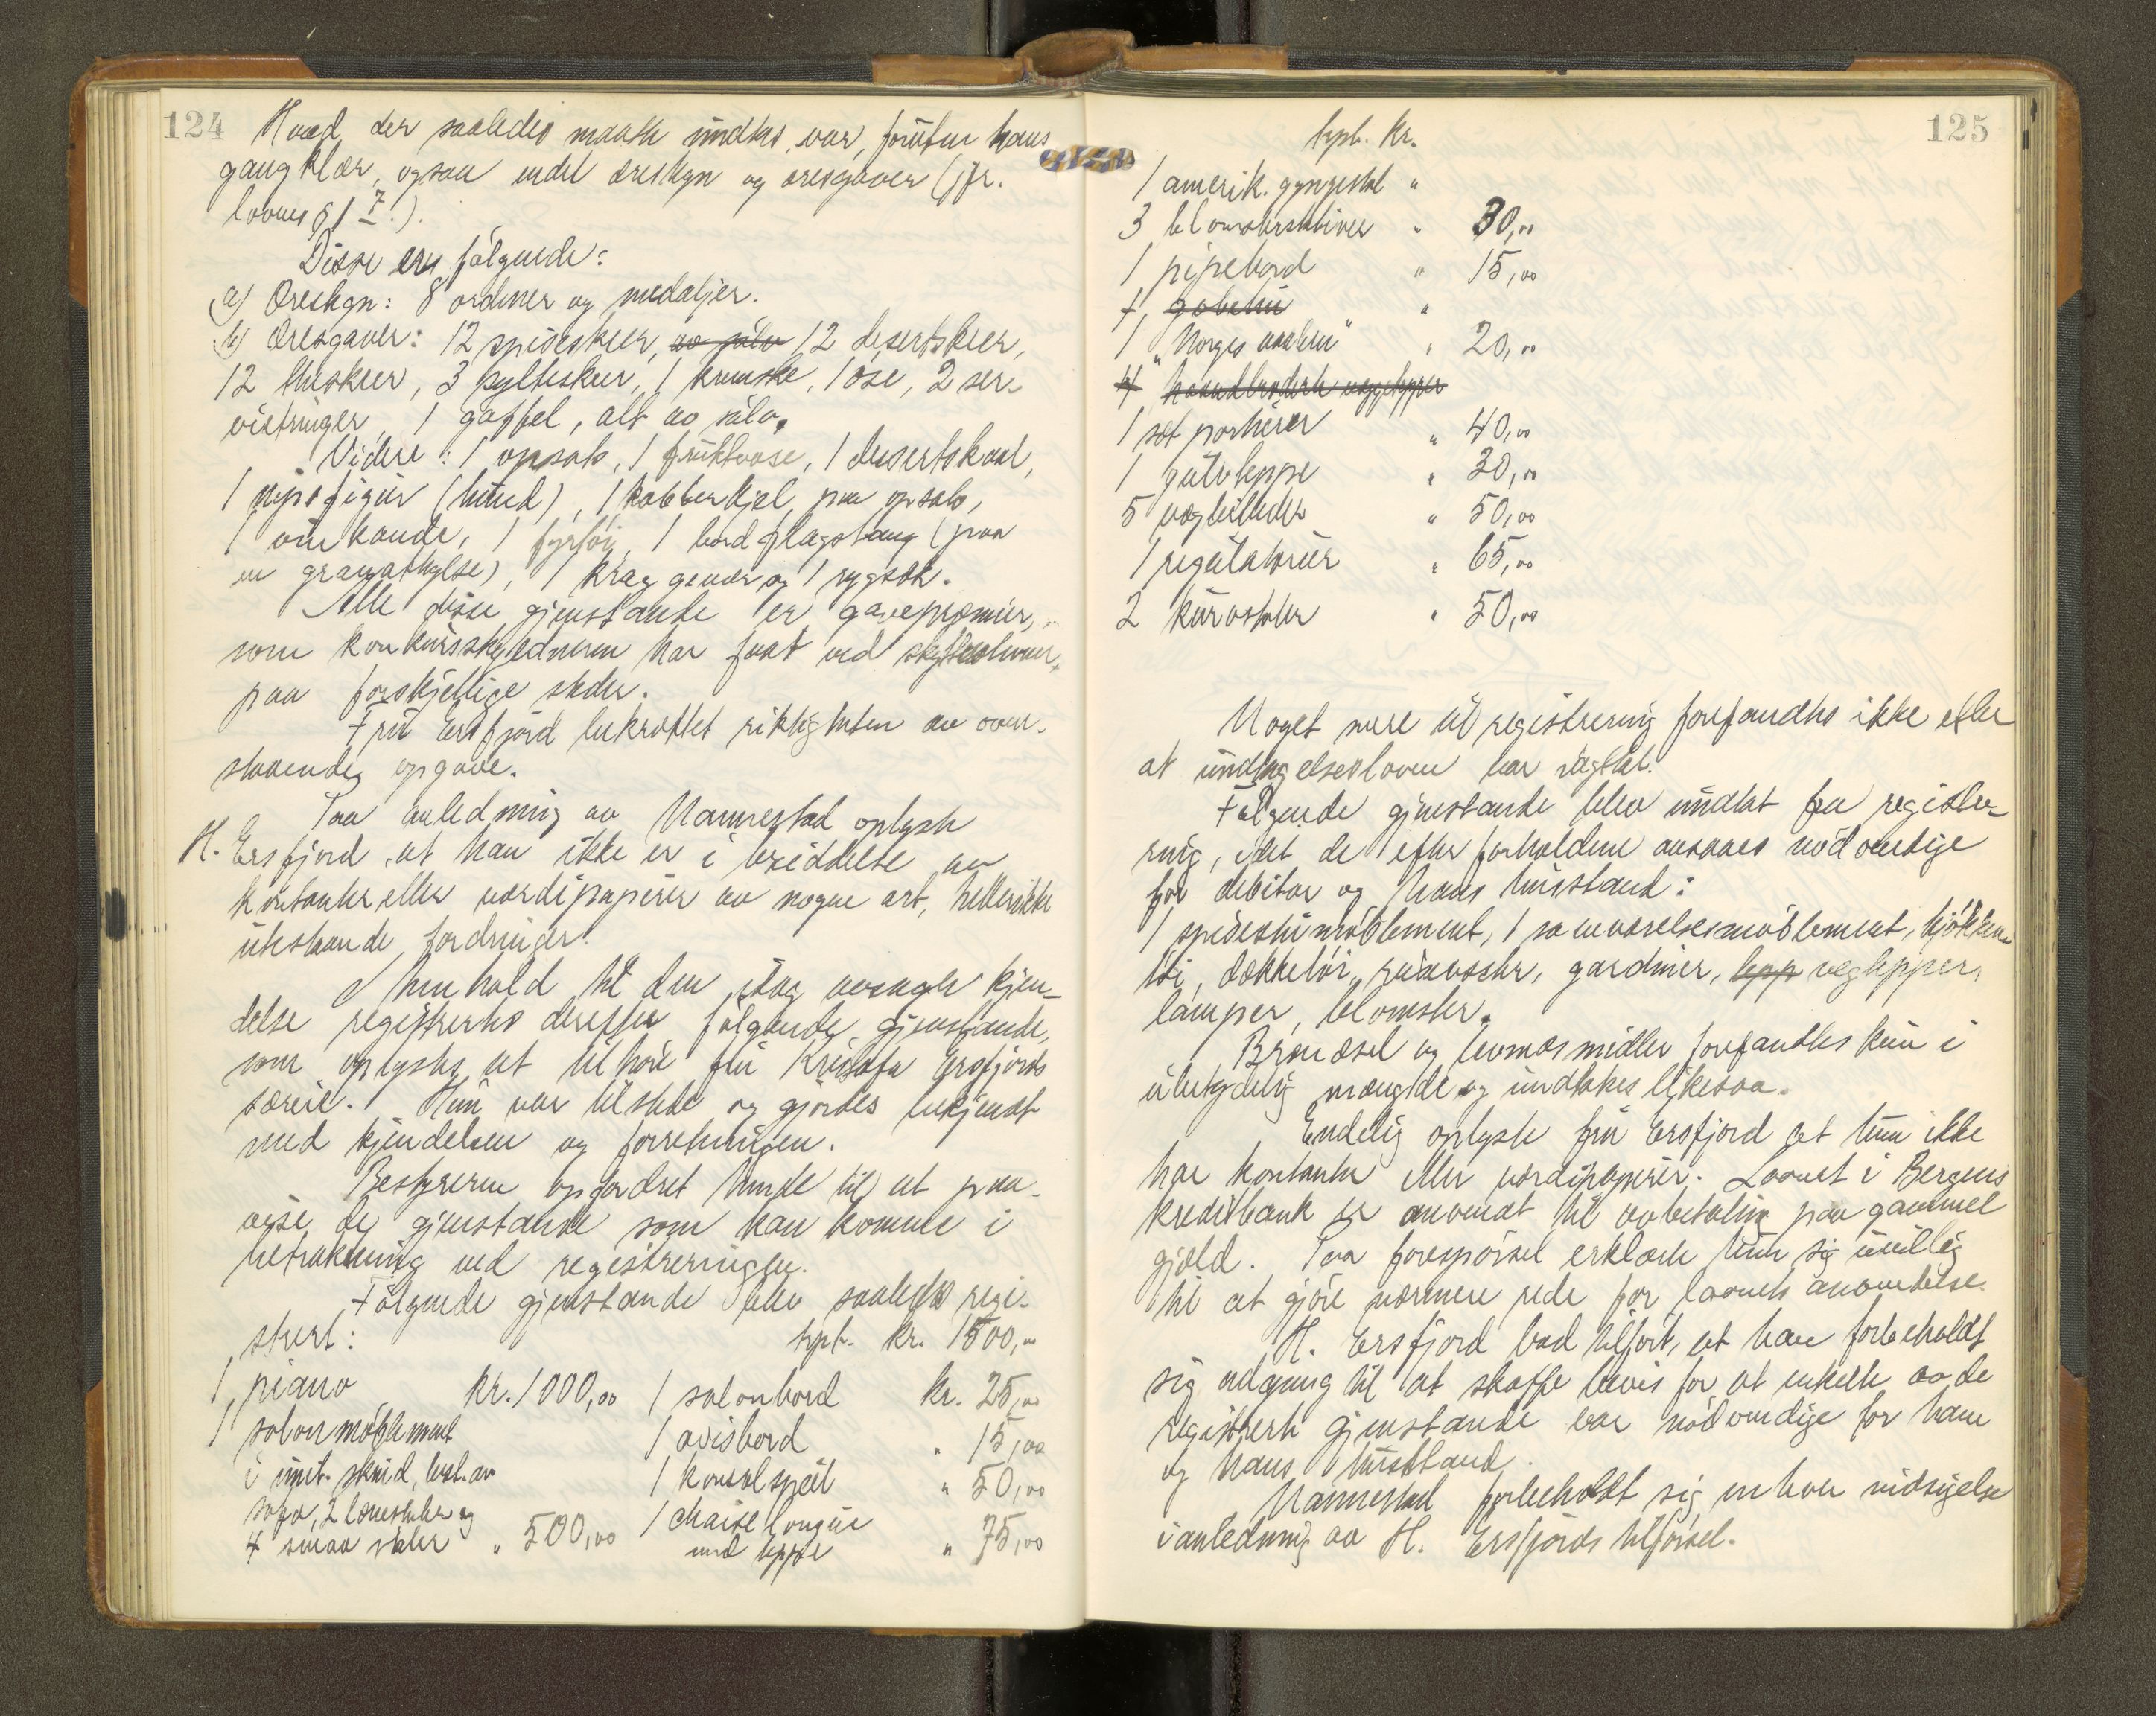 124
Hvad der saaledes maatte undtas, var, foruten hans
gangklær, ogsaa endel ærestegn og æresgaver (jfr.
lovens § 1 I 7).
Disse er følgende:
a) Ærestegn: 8 ordener og medaljer.
b) Æresgaver: 12 spiseskeer, av sølv 12 desertskeer,
12 theskeer, 3 sylteskeer, 1 kremske, 1 øse, 2 ser-
vietringer, 1 gaffel, alt av sølv.
Videre: 1 opsats, 1 fruktvase, 1 desertskaal,
1 nipsfigur (hund), 1 kobberkjel paa opsats,
1 vinkande, 1 fyrtøi, 1 bordflagstang (paa
en granathylse), 1 Krag gevær og 1 rygsæk.
Alle disse gjenstande er gavepræmier,
som konkursskyldneren har faat ved skytterstevner
paa forskjellige steder.
Fru Ersfjord bekræftet riktigheten av oven-
staaende opgave.
Paa anledning av Nannestad oplyste
H. Ersfjord, at han ikke er i besiddelse av
kontanter eller værdipapirer av nogen art, heller ikke
utestaaende fordringer.
I henhold til den idag avsagte kjen-
delse registrertes derefter følgende gjenstande,
som oplystes at tilhøre fru Kristofa Ersfjords
særeie. Hun var tilstede og gjordes bekjendt
med kjendelsen og forretningen.
Bestyreren opfordret hende til at paa-
vise de gjenstande som kan komme i
betraktning ved registreringen.
Følgende gjenstande blev saaledes regi-
strert:
1 piano kr. 1000,00
1 salonmøblement
i imit. skind, best. av
sofa, 2 lænestoler og
4 smaa stoler " 500,00
trpt. kr. 1500,00
1 salonbord kr. 25,00
1 avisbord " 15,00
1 konsolspeil " 50,00
1 chaise longue
med teppe " 75,00
125
trpt. kr.
1 amerik. gyngestol "
3 blomsterstativer " 30,00
1 pipebord " 15,00
1 gobelin "
1 "Norges vaaben" " 20,00
4 haandbroderte vægtepper
1 sæt portierer " 40,00
1 gulvteppe " 30,00
5 vægbilleder " 50,00
1 regulatorur " 65,00
2 kurvstoler " 50,00
Noget mere til registrering forefandtes ikke efter
at undtagelsesloven var iagttat.
Følgende gjenstande blev undtat fra registre-
ring, idet de efter forholdene ansaaes nødvendige
for debitor og hans husstand:
1 spisestuemøblement, 1 soveværelsesmøblement, kjøkken-
tøi, dækketøi, gardiner, tepp vegtepper,
lamper, blomster.
Brændsel og levnedsmidler forefandtes kun i
ubetydelig mængde og undtokes likesaa.
Endelig oplyste fru Ersfjord at hun ikke
har kontanter eller værdipapirer. Laanet i Bergens
kreditbank er anvendt til avbetaling paa gammel
gjæld. Paa forespørsel erklærte hun sig uvillig
til at gjøre nærmere rede for laanets anvendelse.
H. Ersfjord bad tilført, at han forbeholdt
sig adgang til at skaffe bevis for at enkelte av de
registrerte gjenstande var nødvendige for ham
og hans husstand.
Nannestad forbeholdt sig enhver indsigelse
i anledning av H. Ersfjords tilførsel.